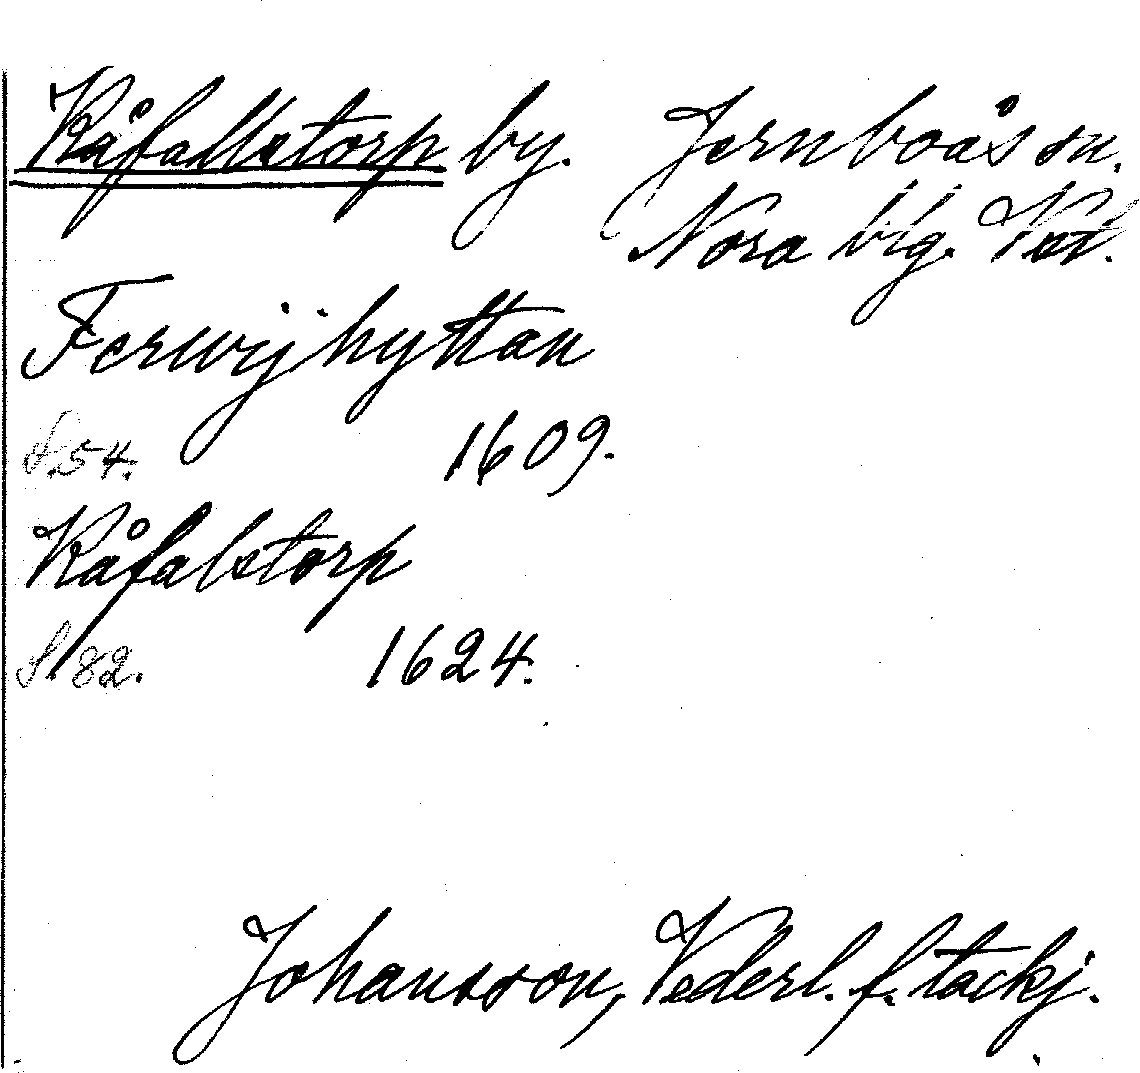 Råfallstorp by. Jernboås sn.
Nora blg. Vstl.
Ferwijhyttan
S. 54. 1609.
Råfalstorp
S. 82. 1624.
Johansson, Vederl. f. tackj.